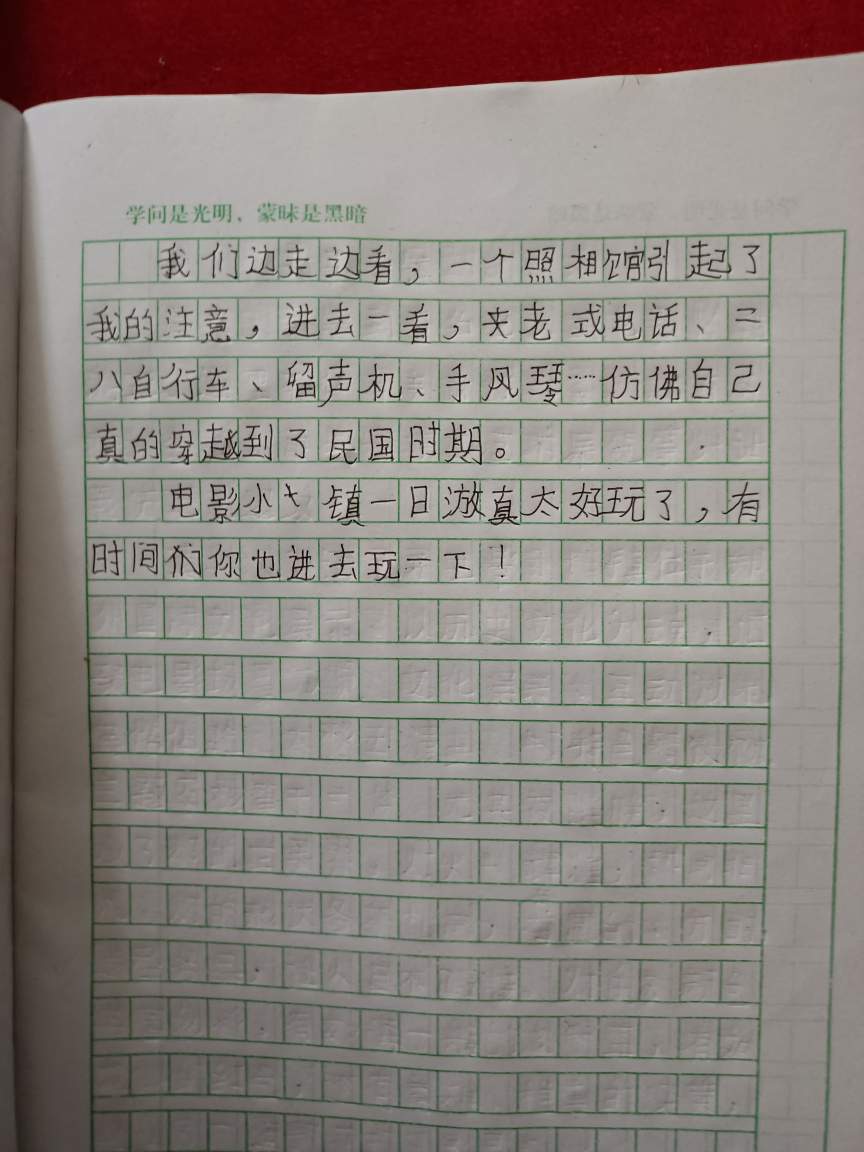 学问是光明，蒙昧是黑暗
我们边走边看，一个照相馆引起了
我的注意，进去一看，夹老式电话、二
八自行车、留声机、手风琴……仿佛自己
真的穿越到了民国时期。
电影小七镇一日游真太好玩了，有
时间们你也进去玩一下！